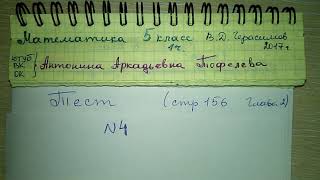 Математика 5 класс В.Д. Герасимов
1ч. 2017г.
ЮТУБ
ВК
ОК
Антонина Аркадьевна Тофелева
Тест (стр 156 Глава 2)
№4